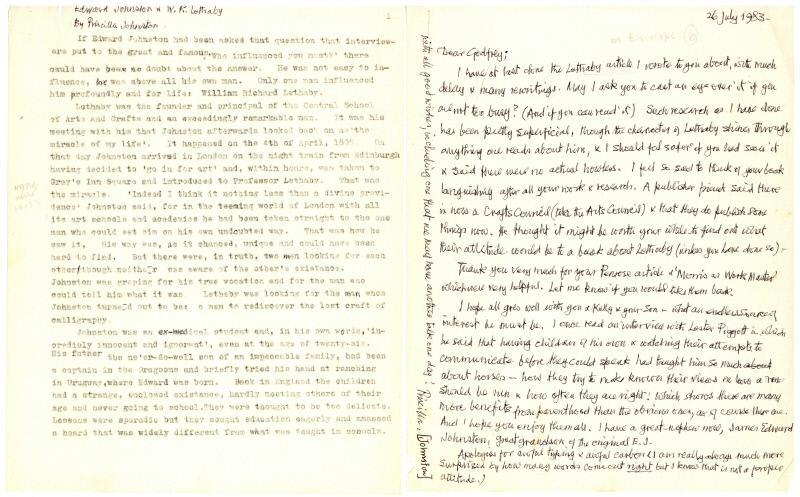 Edward Johnston & W. R. Lethaby
By Priscilla Johnston.
1
If Edward Johnston had been asked that question that interview-
ers put to the great and famous, 'Who influenced you most?' there
could have been no doubt about the answer. He was not easy to in-
fluence, he was above all his own man. Only one man influenced
him profoundly and for life: William Richard Lethaby.
Lethaby was the founder and principal of the Central School
of Arts and Crafts and an exceedingly remarkable man. It was his
meeting with him that Johnston afterwards looked back on as 'the
miracle of my life'. It happened on the 4th of April, 1898. On
that day Johnston arrived in London on the night train from Edinburgh
having decided to 'go in for art' and, within hours, was taken to
Gray's Inn Square and introduced to Professor Lethaby. That was
the miracle. 'Indeed I think it nothing less than a divine provi-
dence' Johnston said, for in the teeming world of London with all
its art schools and academies he had been taken straight to the one
man who could set him on his own undoubted way. That was how he
saw it. His way was, as it chanced, unique and could have been
hard to find. But there were, in truth, two men looking for each
other, though neither one aware of the other's existance.
Johnston was groping for his true vocation and for the man who
could tell him what it was. Lethaby was looking for the man whom
Johnston turned out to be: a man to rediscover the lost craft of
calligraphy.
Johnston was an ex-medical student and, in his own words, 'in-
credibly innocent and ignorant', even at the age of twenty-six.
His father the ne'er-do-well son of an impeccable family, had been
a captain in the Dragoons and briefly tried his hand at ranching
in Uruguay, where Edward was born. Back in England the children
had a strange, enclosed existance, hardly meeting others of their
age and never going to school. They were thought to be too delicate.
Lessons were sporadic but they sought education eagerly and amassed
a hoard that was widely different from what was taught in schools.
26 July 1983-
Dear Godfrey;
I have at last done the Lethaby article I wrote to you about, with much
delay & many rewritings. May I ask you to cast an eye over it if you
are not too busy? (And if you can read it) Such research as I have done
has been pretty superficial, though the character of Lethaby shines through
anything one reads about him, & I should feel safer if you had seen it
& said there were no actual howlers. I feel so sad to think of your book
languishing after all your work & research. A publisher friend said there
is now a Crafts Council (like the Arts Council) & that they do publish some
things now. He thought it might be worth your while to find out what
their attitude would be to a book about Lethaby (unless you have done so) -
Thank you very much for your Penrose article & 'Morris as Work Master'
which were very helpful. Let me know if you would like them back.
I hope all goes well with you & Kelly & your Son - what an endless source of
interest he must be. I once read an interview with Lester Piggott in which
he said that having children of his own & watching their attempts to
communicate before they could speak had taught him so much about
about horses - how they try to make known their views on how a race
should be run & how often they are right; which shows there are many
more benefits from parenthood than the obvious ones, as of course there are.
And I hope you enjoy them all. I have a great-nephew now, James Edward
Johnston, great grandson of the original E.J.
Apologies for awful typing & awful carbon (I am really always much more
surprised by how many words come out right but I know that is not a proper
attitude.)
with all good wishes, including one that we may have another talk one day! Priscilla. [Johnston]